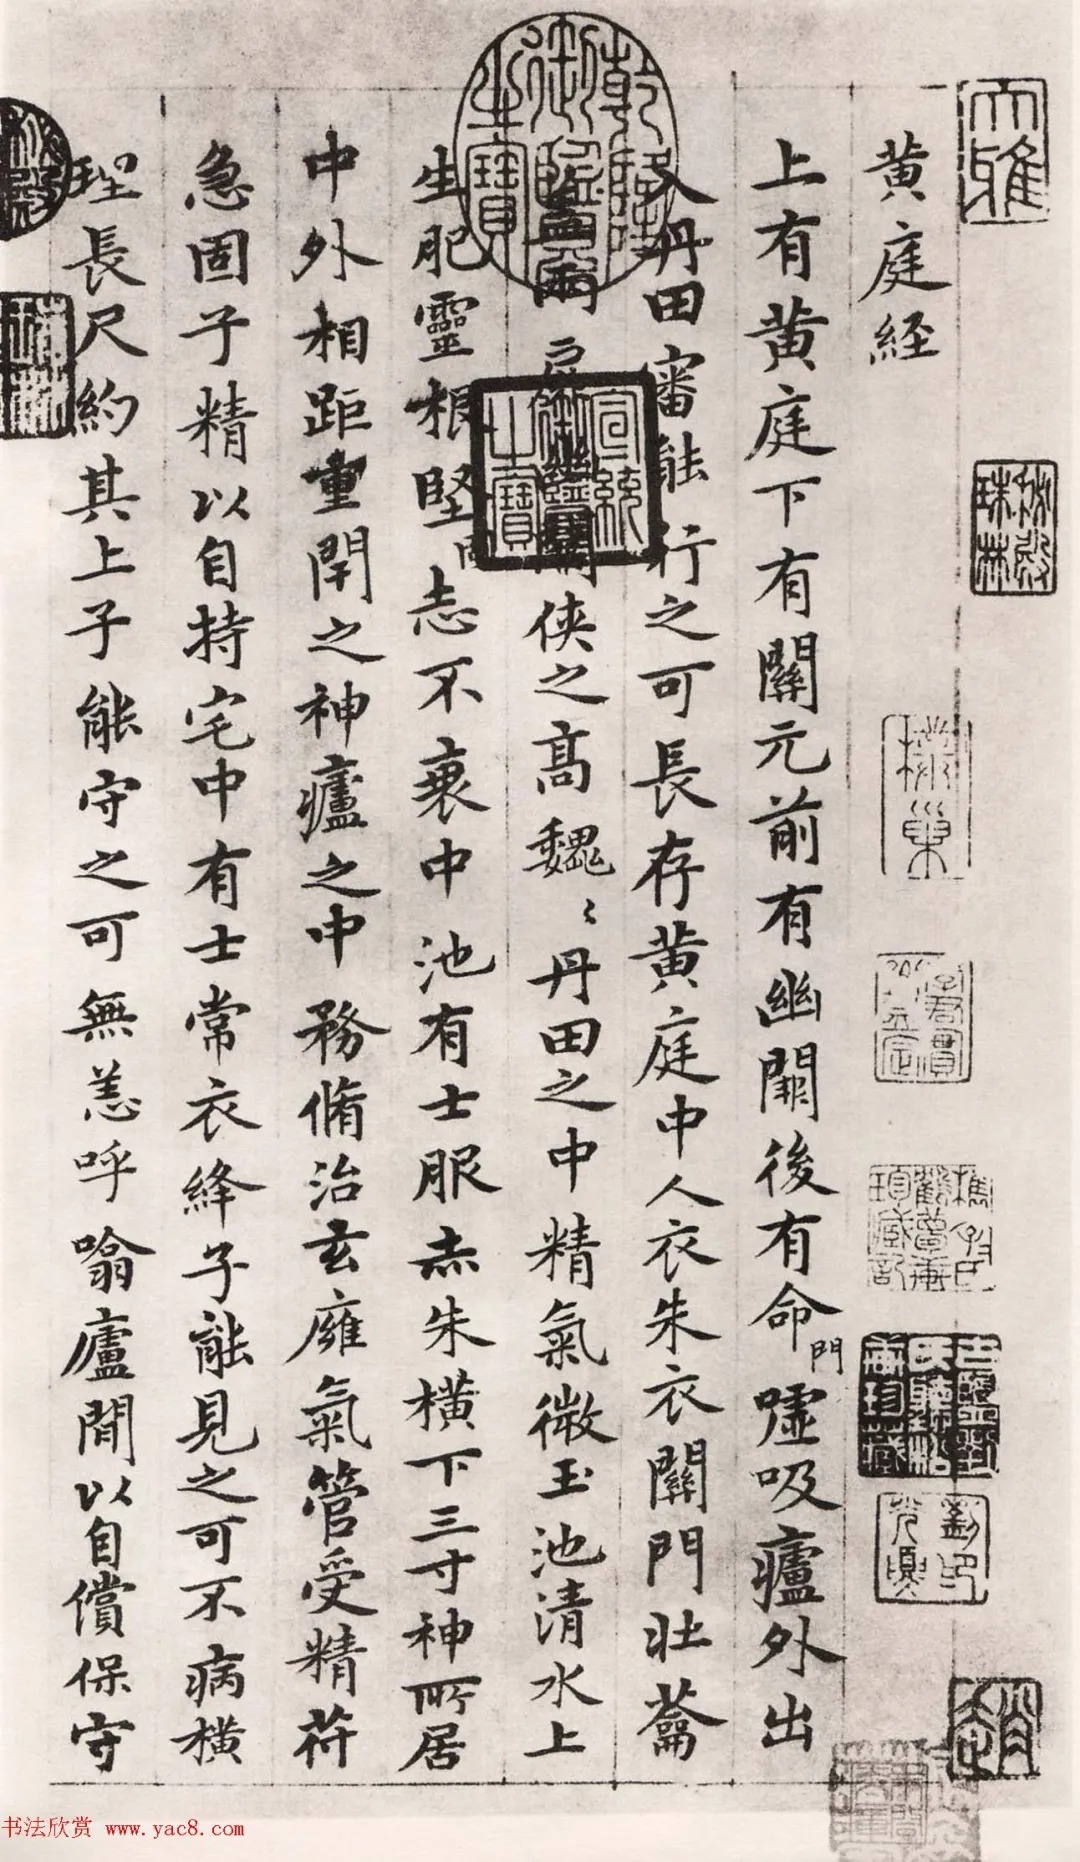 黄庭経
上有黄庭下有關元前有幽闕後有命門嘘吸廬外出
入丹田審能行之可長存黄庭中人衣朱衣關門壯蘥
蓋兩扉幽闕侠之高魏〻丹田之中精氣微玉池清水上
生肥靈根堅固志不衰中池有士服赤朱横下三寸神所居
中外相距重閇之神廬之中務脩治玄廱氣管受精苻
急固子精以自持宅中有士常衣絳子能見之可不病横
理長尺約其上子能守之可無恙呼噏廬閒以自償保守
大雅
秘殿珠林
宣統御覽之寶
乾隆御覽之寶
书法欣赏 www.yac8.com